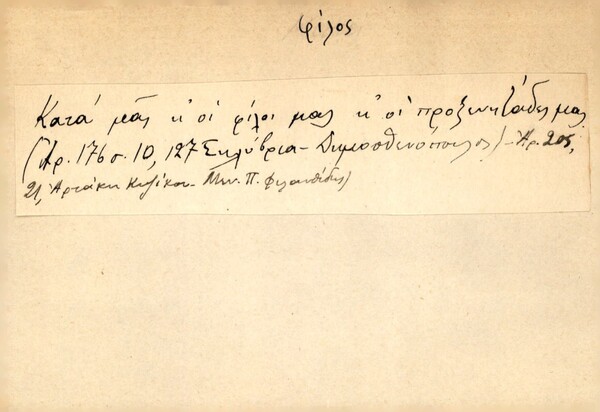 φίλος
Κατά μᾶς κ' οἱ φίλοι μας κ' οἱ προξενητζάδες μας
(Ἀρ. 176 σ. 10, 127 Σηλύβρια - Δημοσθενόπουλος) - Ἀρ. 205,
21, Ἀρτάκη Κυζίκου - Μην. Π. Φιλανθίδης)